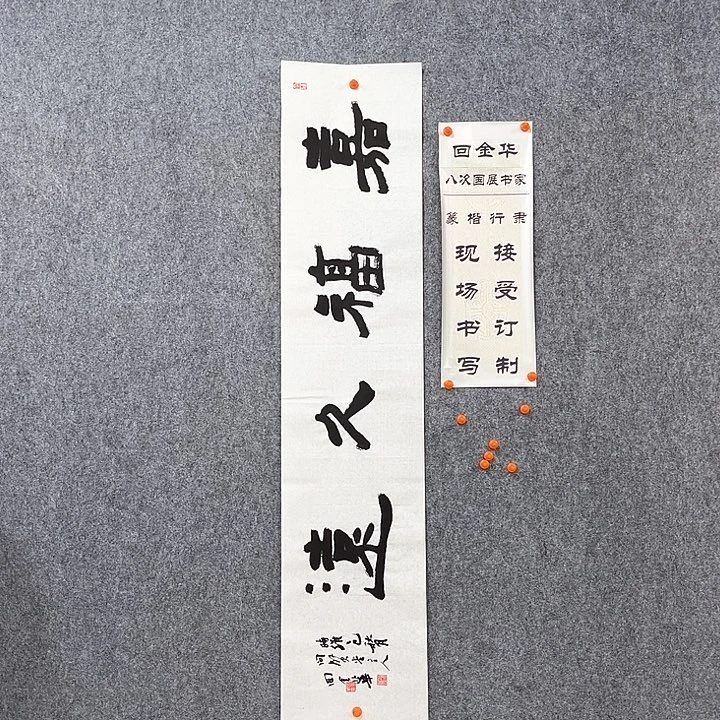 嘉福久遠
回金华
八次国展书家
篆楷行隶
现场书写
接受订制